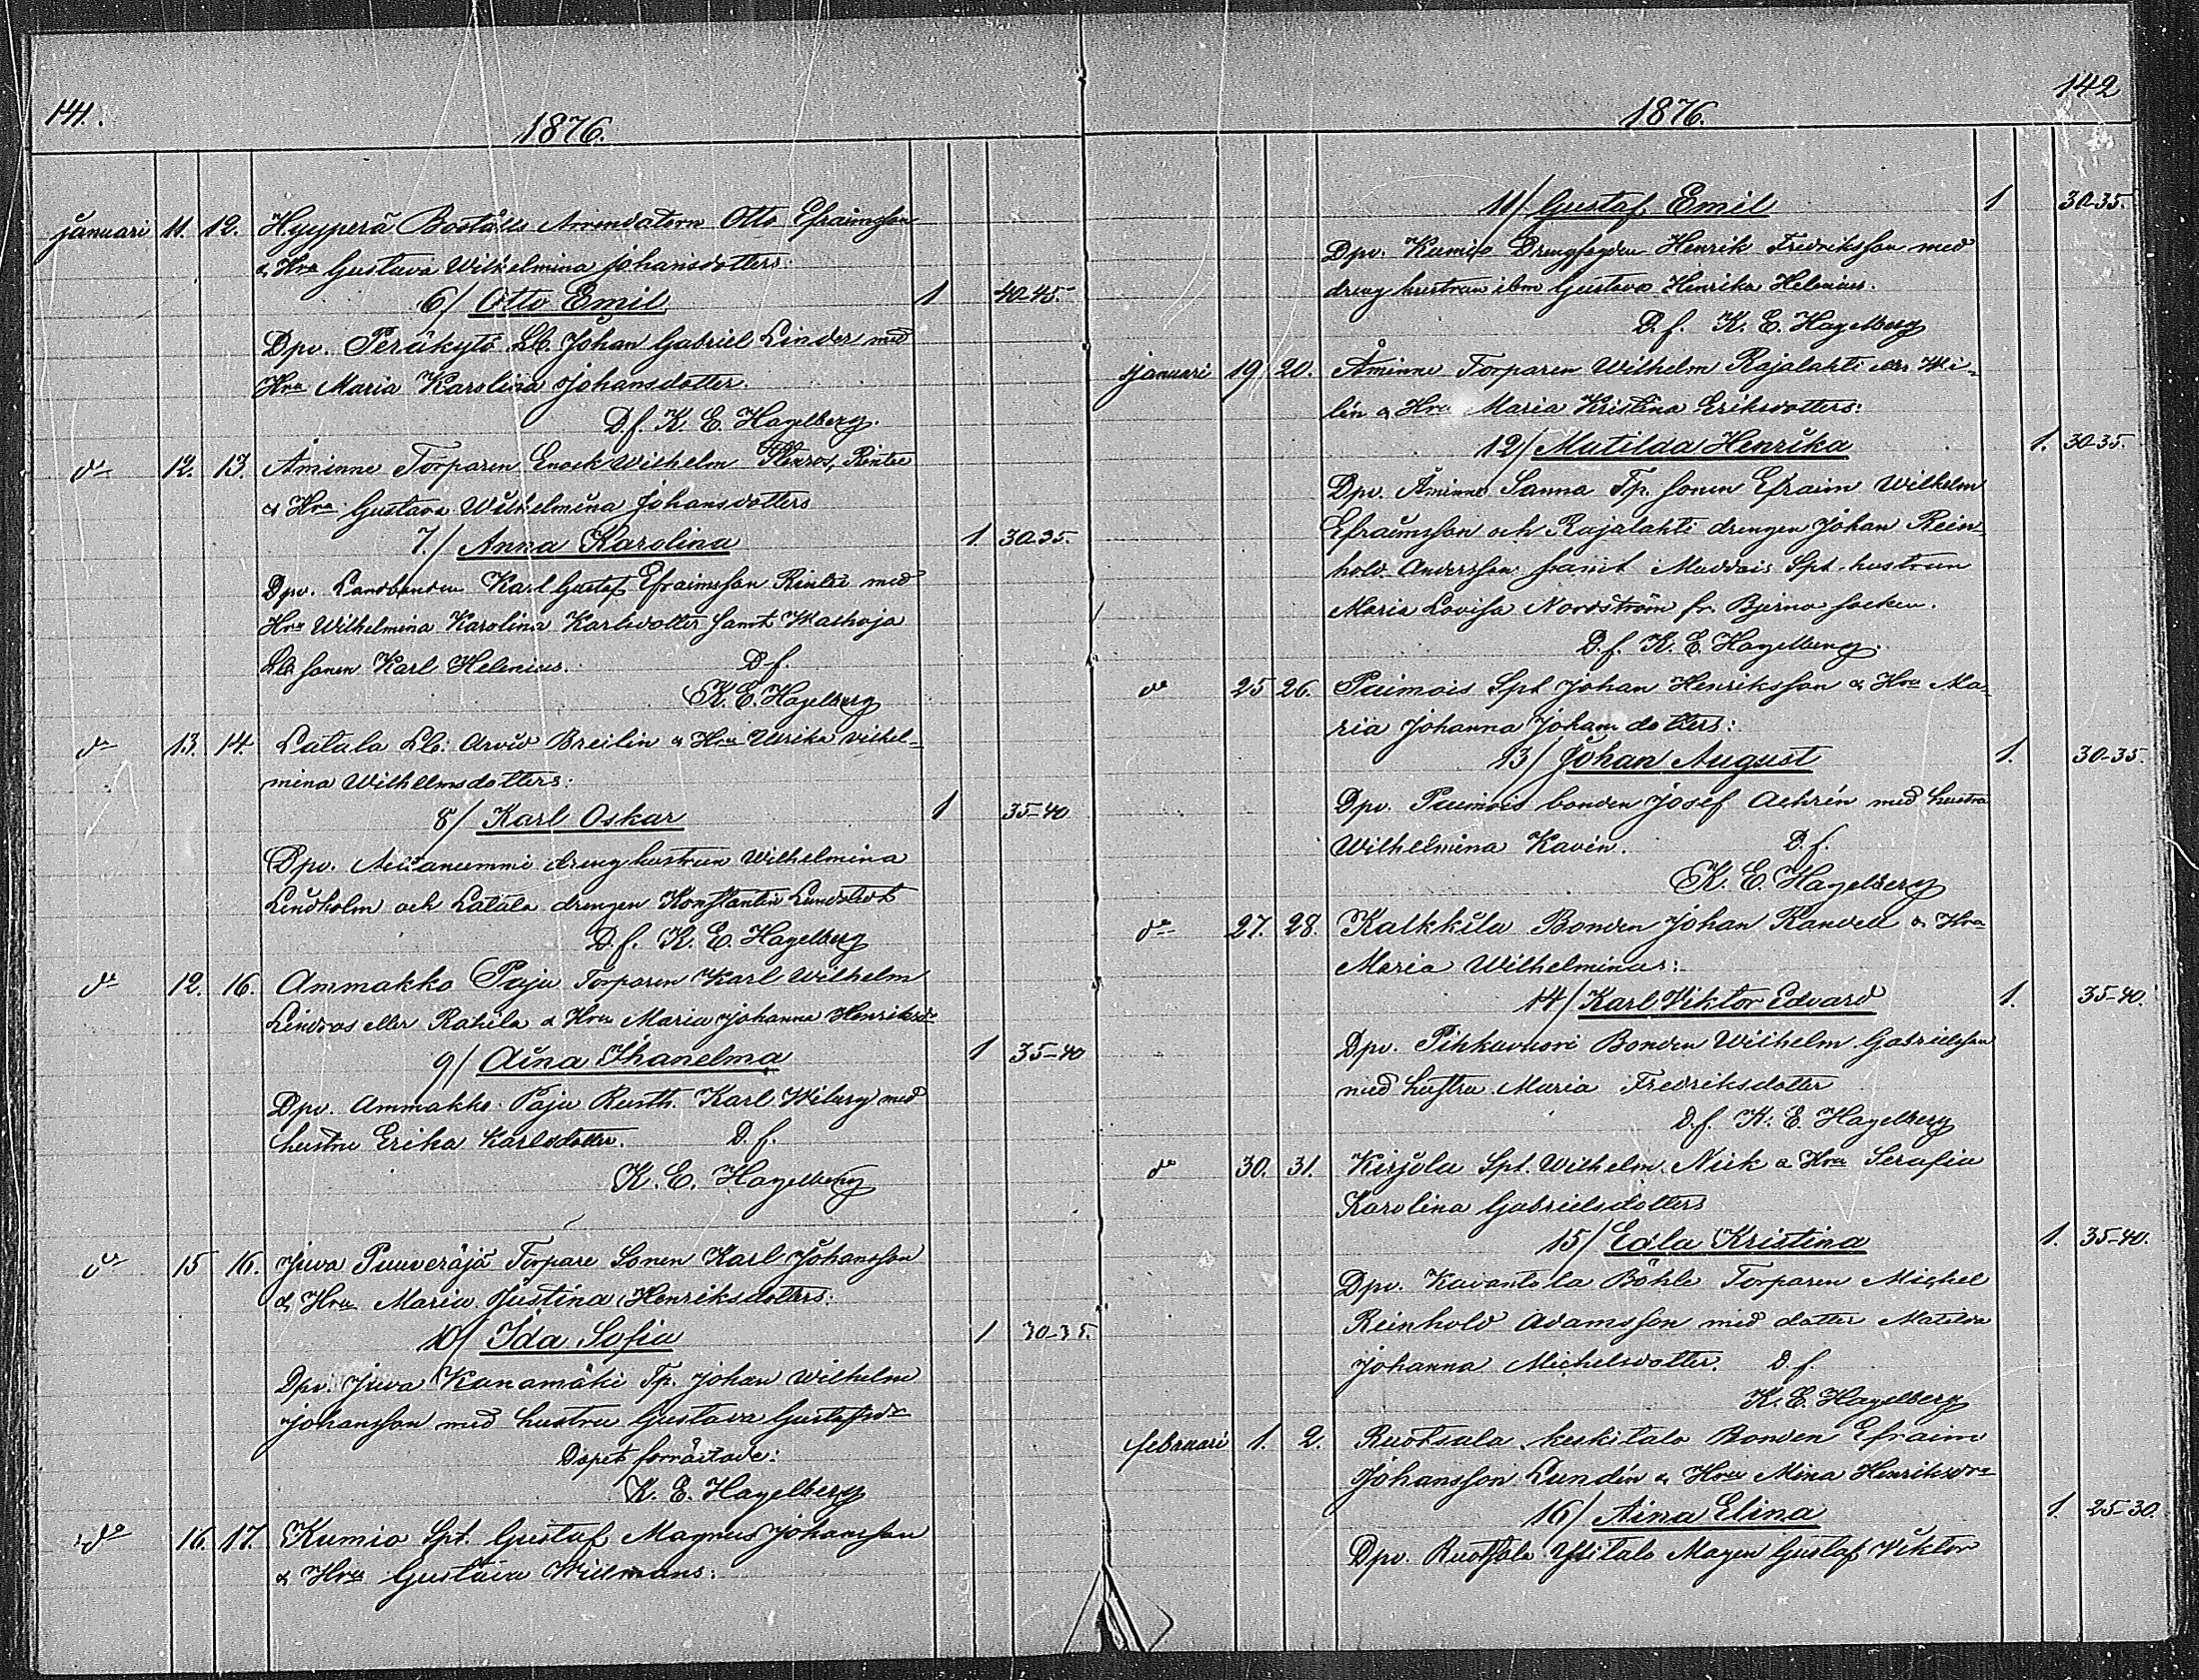 141.
1876.
januari 11. 12. Hyyperä Boställs Arrendatorn Otto Efraimsson
& Hru Gustava Wilhelmina Johansdotters:
6/ Otto Emil 1 40-45
Dpv. Peräkytö Lb. Johan Gabriel Linder med
Hru Maria Karolina Johansdotter.
D.f. K. E. Hagelberg.
do 12. 13. Åminne Torparen Enock Wilhelm Rintee
& Hru Gustava Wilhelmina Johansdotters
7./ Anna Karolina 1. 30-35.
Dpv. Landbonden Karl Gustaf Efraimsson Rintee med
Hru Wilhelmina Karolina Karlsdotter samt
Lb sonen Karl Helenius. D.f.
K. E. Hagelberg
do 13. 14. Latala Lb: Arvid Breilin & Hru Ulrika Vilhel-
mina Wilhelmsdotters:
8/ Karl Oskar 1 35-40
Dpv. dreng hustrun Wilhelmina
Lindholm och Latala drengen Konstantin Lundstedt
D.f. K. E. Hagelberg
do 12. 16. Ammakko Paju Torparen Karl Wilhelm
Lindros eller Rahila & Hru Maria Johanna Henriksdr
9/ Aina Ihanelma 1 35-40
Dpv. Ammakko Paju Rusth. Karl Wiberg med
hustru Erika Karlsdotter. D.f.
K. E. Hagelberg
do 15 16. Juva Puuveräjä Torpare Sonen Karl Johansson
& Hru Maria Justina Henriksdotters:
10/ Ida Sofia 1 30-35.
Dpv. Juva Kanamäki Tp. Johan Wilhelm
Johansson med hustru Gustava Gustafsdr
Dopet förrättade:
K. E. Hagelberg
do 16. 17. Kumio Spt. Gustaf Magnus Johansson
& Hru Gustava Willmans:
142
1876.
11/ Gustaf Emil 1 30-35.
Dpv. Kumio Drengfogden Henrik Fredriksson med
dreng hustrun ibm Gustava Henrika Helenius.
D.f. K. E. Hagelberg
januari 19 20. Åminne Torparen Wilhelm Rajalahti eller Wi-
lin & Hru Maria Kristina Eriksdotters:
12/ Matilda Henrika 1. 30-35.
Dpv. Åminne Sanna Tp. sonen Efraim Wilhelm
Efraimsson och Rajalahti drengen Johan Rein-
hold Andersson samt Maddais Spt. hustrun
Maria Lovisa Nordström fr. Bjerno socken.
D.f. K. E. Hagelberg.
do 25 26. Paimais Spt Johan Henriksson & Hru Ma-
ria Johanna Johansdotters:
13/ Johan August 1. 30-35.
Dpv. Paimais bonden Josef Achrén med hustru
Wilhelmina Kavén. D.f.
K. E. Hagelberg
do 27. 28. Kalkkila Bonden Johan Randell & Hru
Maria Wilhelminas:
14/ Karl Viktor Edvard 1. 35-40.
Dpv. Pihkavuori Bonden Wilhelm Gabrielsson
med hustru Maria Fredriksdotter
D.f. K. E. Hagelberg
do 30. 31. Kirjola Spt. Wilhelm Niek & Hru Serafia
Karolina Gabrielsdotters
15/ Edla Kristina 1. 35-40.
Dpv. Kavantola Böhle Torparen Michel
Reinhold Adamsson med dotter Matilda
Johanna Michelsdotter. D.f.
K. E. Hagelberg
februari 1. 2. Ruotsala keskitalo Bonden Efraim
Johansson Lundén & Hru Mina Henriksdr
16/ Aina Elina 1. 25-30.
Dpv. Ruotsala Ylitalo Magen Gustaf Viktor